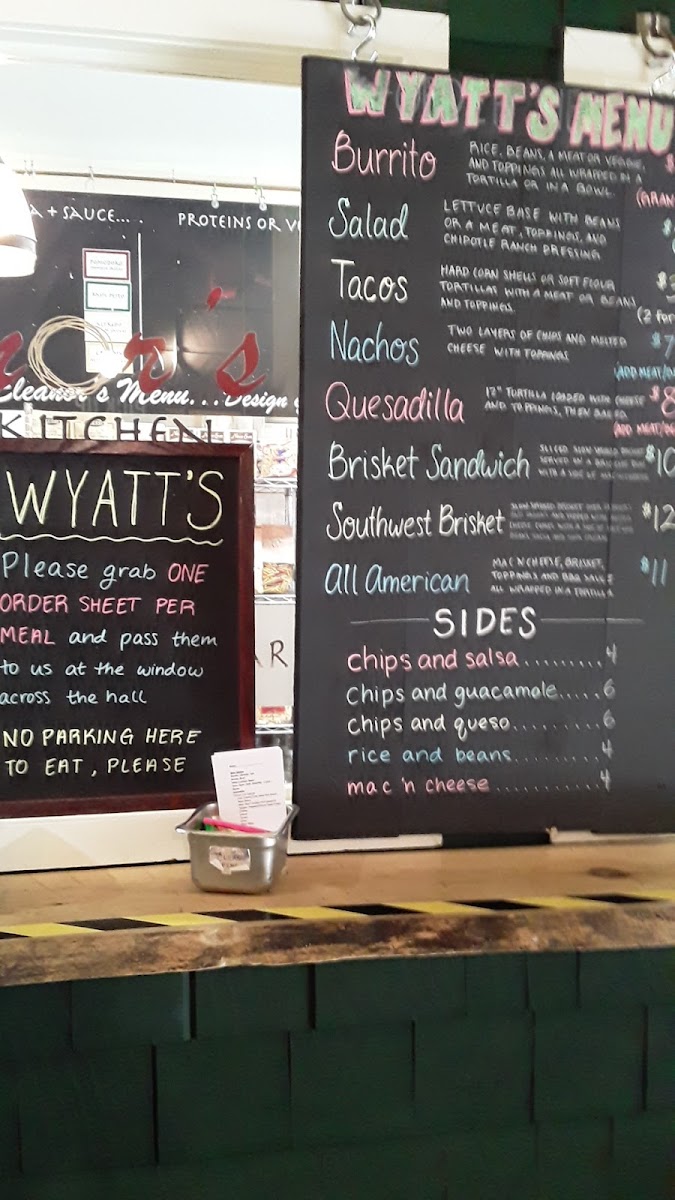 WYATT'S MENU
Burrito
RICE, BEANS, A MEAT OR VEGGIE,
AND TOPPINGS ALL WRAPPED IN A
TORTILLA OR IN A BOWL.
$
(GRAN
Salad
LETTUCE BASE WITH BEANS
OR A MEAT, TOPPINGS, AND
CHIPOTLE RANCH DRESSING
$
Tacos
HARD CORN SHELLS OR SOFT FLOUR
TORTILLAS WITH A MEAT OR BEANS
AND TOPPINGS.
$
(2 for
Nachos
TWO LAYERS OF CHIPS AND MELTED
CHEESE WITH TOPPINGS
$7
(ADD MEAT/
Quesadilla
12" TORTILLA LOADED WITH CHEESE
AND TOPPINGS, THEN BAKED.
$8
(ADD MEAT/BE
Brisket Sandwich
$10
Southwest Brisket
$12
All American
MAC 'N CHEESE, BRISKET,
TOPPINGS AND BBQ SAUCE
ALL WRAPPED IN A TORTILLA
$11
SIDES
chips and salsa.........4
chips and guacamole.....6
chips and queso..........6
rice and beans..........4
mac 'n cheese...........4
A + SAUCE...
PROTEINS OR V
or's
Eleanor's Menu...Design
KITCHEN
WYATT'S
Please grab ONE
ORDER SHEET PER
MEAL and pass them
to us at the window
across the hall
NO PARKING HERE
TO EAT, PLEASE